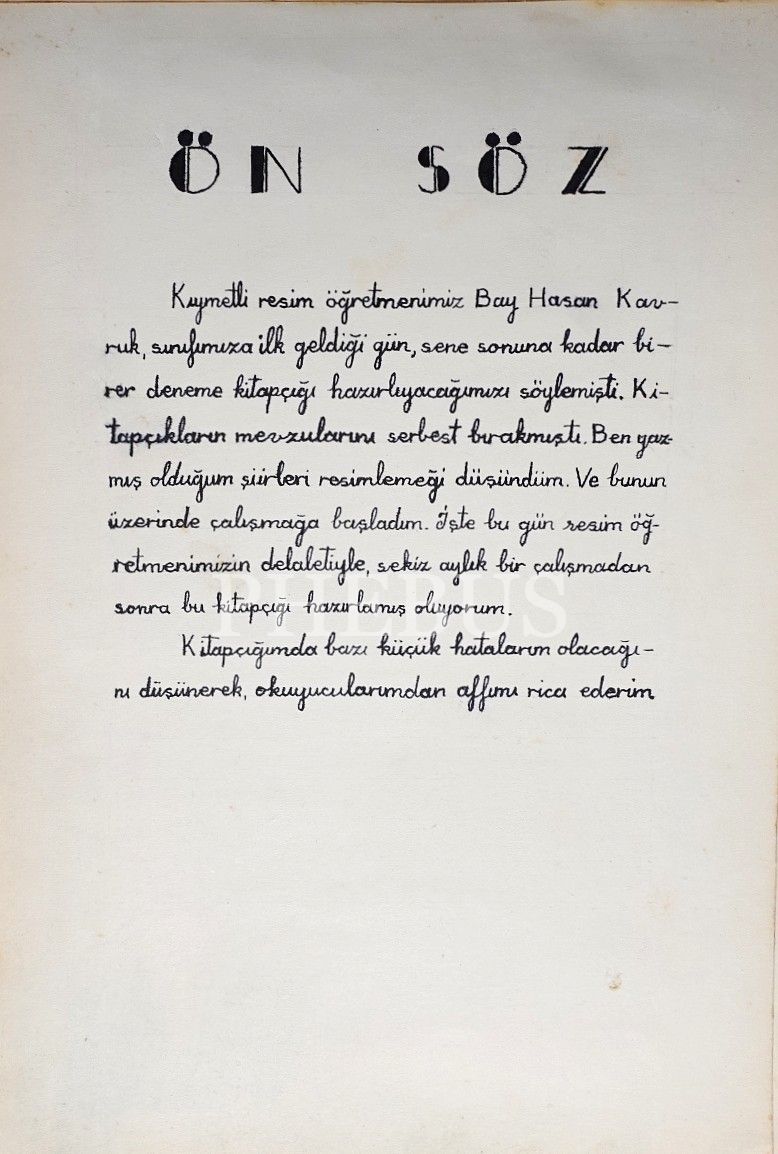 ÖN SÖZ
Kıymetli resim öğretmenimiz Bay Hasan Kav-
ruk, sınıfımıza ilk geldiği gün, sene sonuna kadar bi-
rer deneme kitapçığı hazırlıyacağımızı söylemişti. Ki-
tapçıkların mevzularını serbest bırakmıştı. Ben yaz-
mış olduğum şiirleri resimlemeği düşündüm. Ve bunun
üzerinde çalışmağa başladım. İşte bu gün resim öğ-
retmenimizin delaletiyle, sekiz aylık bir çalışmadan
sonra bu kitapçığı hazırlamış oluyorum.
PHEBUS
Kitapçığımda bazı küçük hataların olacağı-
nı düşünerek, okuyucularımdan affımı rica ederim